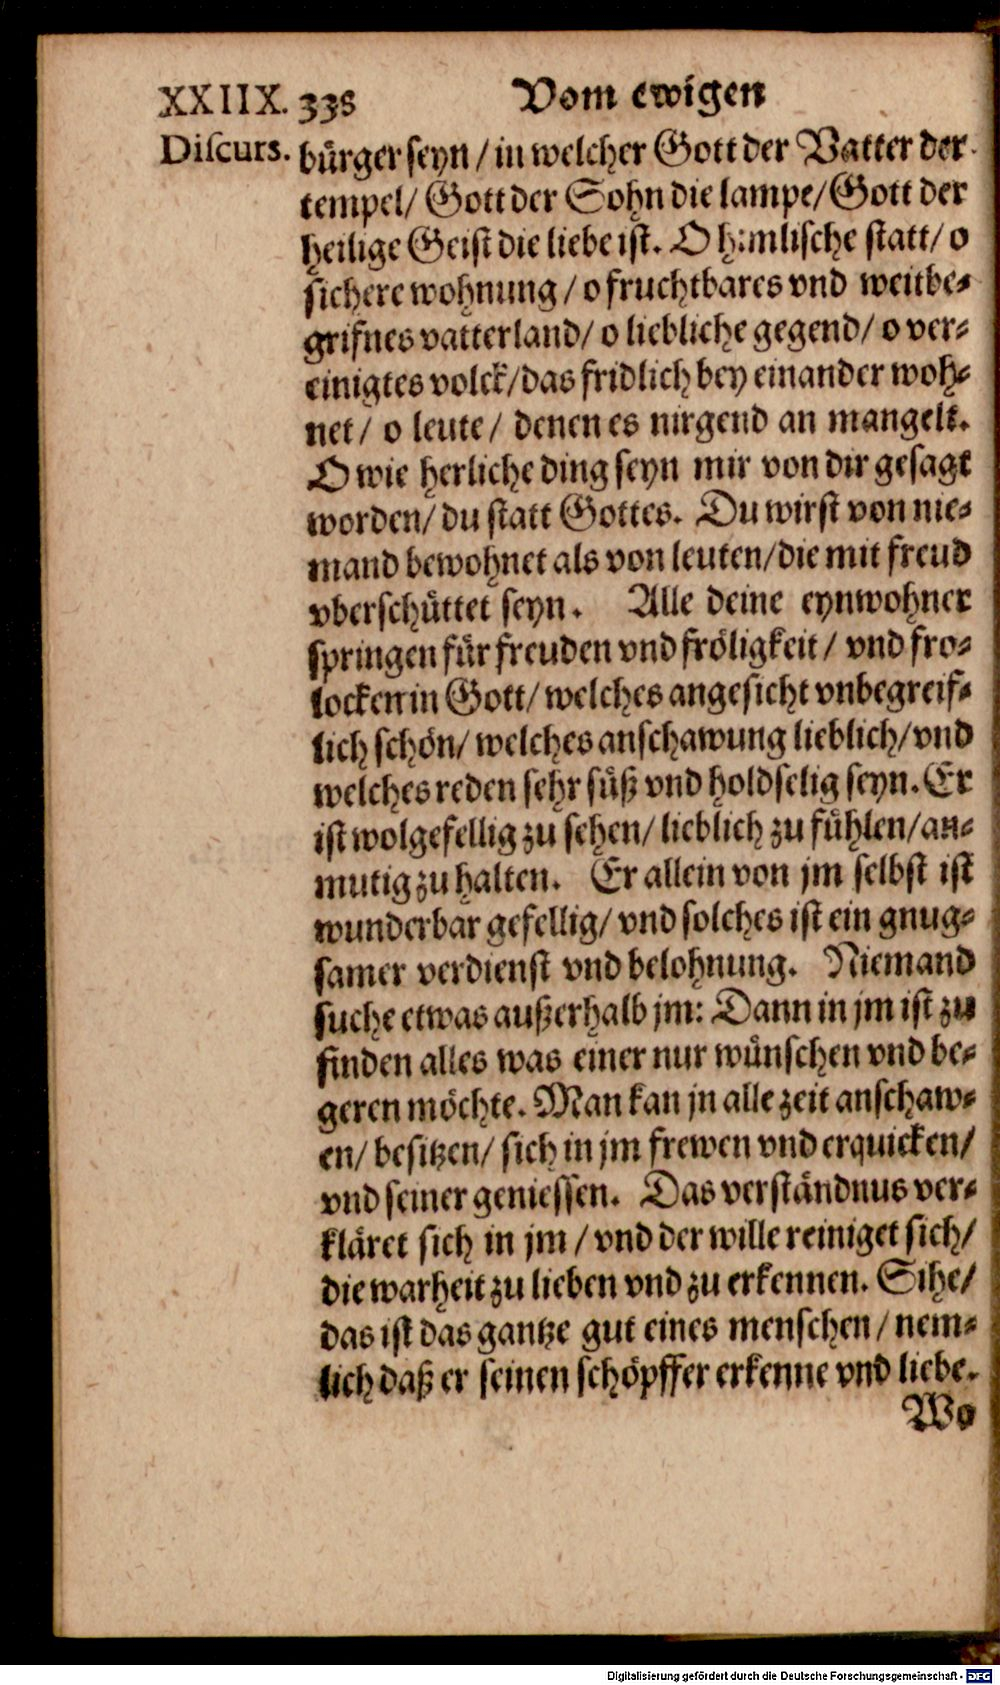 XXIIX. 338 Vom ewigen
Discurs. bürger seyn / in welcher Gott der Vatter der
tempel/ Gott der Sohn die lampe/ Gott der
heilige Geist die liebe ist. O himlische statt/ o
sichere wohnung / o fruchtbares vnd weitbe-
grifnes vatterland/ o liebliche gegend/ o ver-
einigtes volck/ das fridlich bey einander woh-
net / o leute / denen es nirgend an mangelt.
O wie herliche ding seyn mir von dir gesagt
worden/ du statt Gottes. Du wirst von nie-
mand bewohnet als von leuten/ die mit freud
vberschüttet seyn. Alle deine eynwohner
springen für freuden vnd fröligkeit / vnd fro-
locken in Gott/ welches angesicht vnbegreif-
lich schön/ welches anschawung lieblich/ vnd
welches reden sehr süß vnd holdselig seyn. Er
ist wolgefellig zu sehen/ lieblich zu fühlen/ an-
mutig zu halten. Er allein von jm selbst ist
wunderbar gefellig/ vnd solches ist ein gnug-
samer verdienst vnd belohnung. Niemand
suche etwas außerhalb jm: Dann in jm ist zu
finden alles was einer nur wünschen vnd be-
geren möchte. Man kan jn alle zeit anschaw-
en/ besitzen/ sich in jm frewen vnd erquicken/
vnd seiner geniessen. Das verständnus ver-
kläret sich in jm / vnd der wille reiniget sich/
die warheit zu lieben vnd zu erkennen. Sihe/
das ist das gantze gut eines menschen / nem-
lich daß er seinen schöpffer erkenne vnd liebe.
Wo
Digitalisierung gefördert durch die Deutsche Forschungsgemeinschaft - DFG